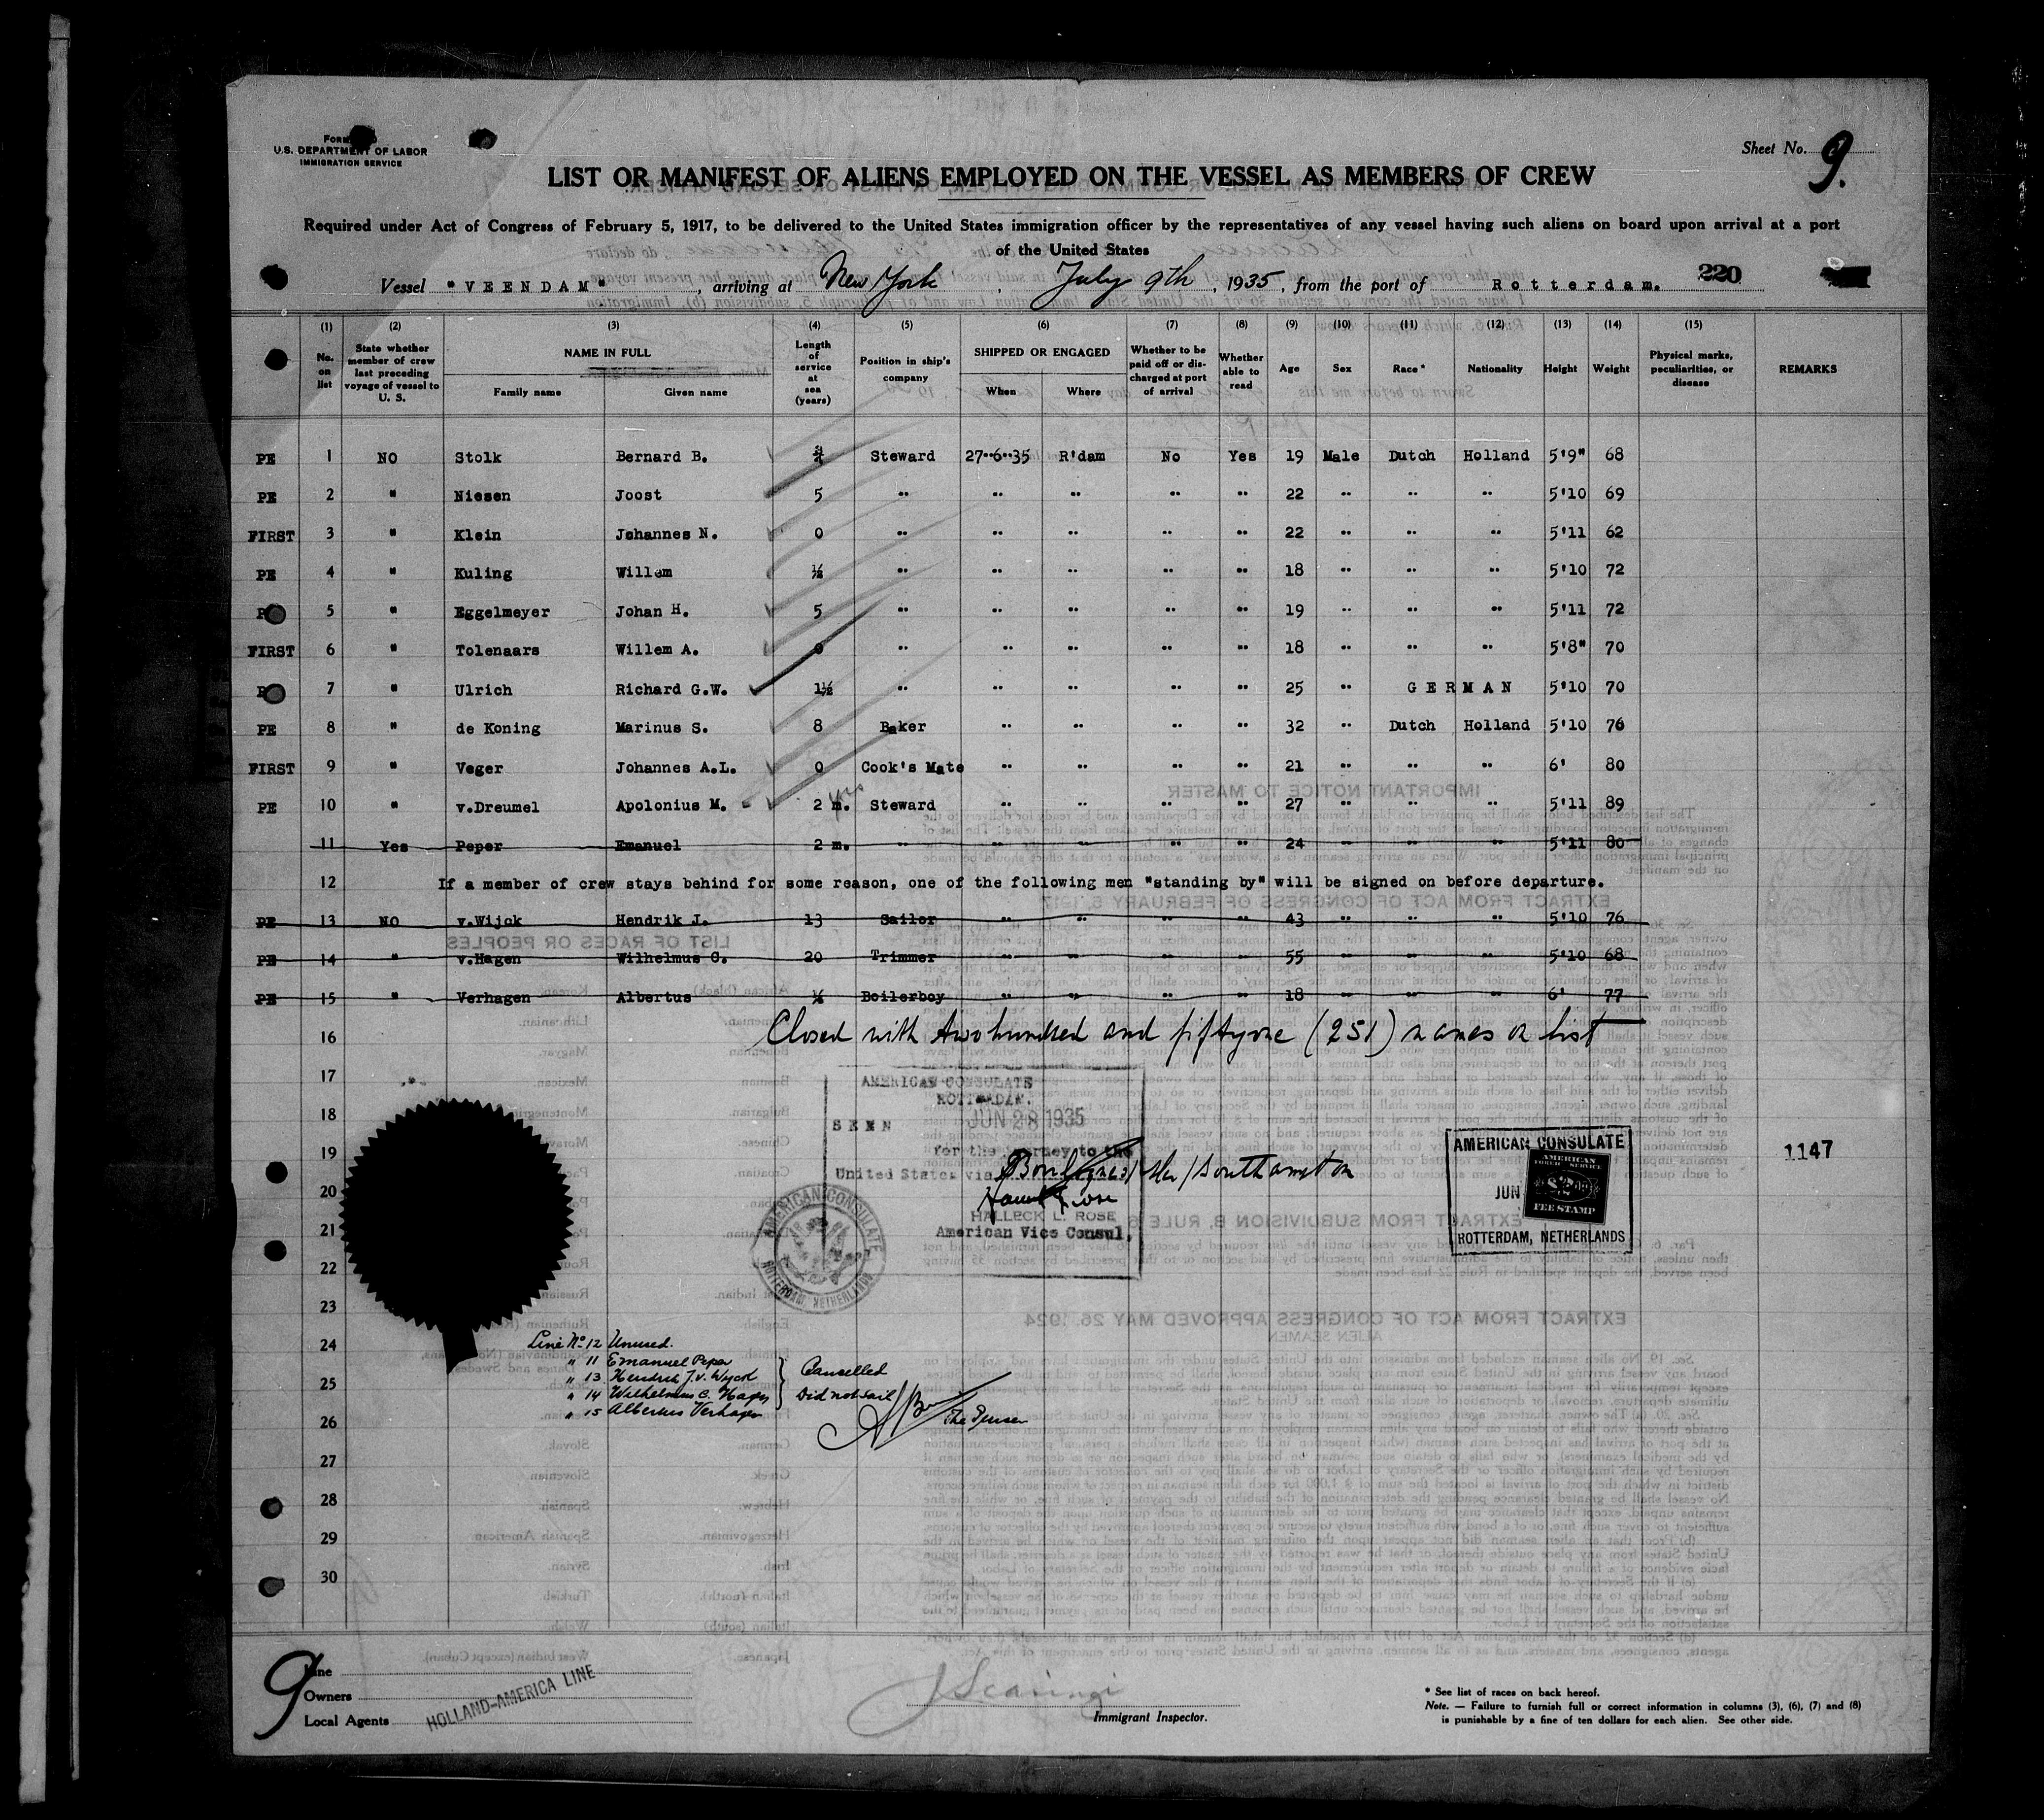 FORM
U.S. DEPARTMENT OF LABOR
IMMIGRATION SERVICE
Sheet No. 9.
LIST OR MANIFEST OF ALIENS EMPLOYED ON THE VESSEL AS MEMBERS OF CREW
Required under Act of Congress of February 5, 1917, to be delivered to the United States immigration officer by the representatives of any vessel having such aliens on board upon arrival at a port
of the United States
Vessel "VEENDAM", arriving at New York, July 9th, 1935, from the port of Rotterdam. 220
(1) (2) (3) (4) (5) (6) (7) (8) (9) (10) (11) (12) (13) (14) (15)
No. on list
State whether member of crew last preceding voyage of vessel to U. S.
NAME IN FULL
Family name Given name
Length of service at sea (years)
Position in ship's company
SHIPPED OR ENGAGED
When Where
Whether to be paid off or discharged at port of arrival
Whether able to read
Age Sex Race* Nationality Height Weight
Physical marks, peculiarities, or disease
REMARKS
PE 1 NO Stolk Bernard B. Steward 27-6-35 R'dam No Yes 19 Male Dutch Holland 5'9" 68
PE 2 " Niesen Joost 5 " " " " " 22 " " " 5'10 69
FIRST 3 " Klein Johannes N. 0 " " " " " 22 " " " 5'11 62
PE 4 " Kuling Willem ½ " " " " " 18 " " " 5'10 72
5 " Eggelmeyer Johan H. 5 " " " " " 19 " " " 5'11 72
FIRST 6 " Tolenaars Willem A. 0 " " " " " 18 " " " 5'8" 70
7 " Ulrich Richard G.W. 1½ " " " " " 25 " GERMAN 5'10 70
PE 8 " de Koning Marinus S. 8 Baker " " " " 32 " Dutch Holland 5'10 76
FIRST 9 " Veger Johannes A.L. 0 Cook's Mate " " " " 21 " " " 6' 80
PE 10 " v.Dreumel Apolonius M. - 2 m. yrs Steward " " " " 27 " " " 5'11 89
11 Yes Peper Emanuel 2 m. " " " " " 24 " " " 5'11 80
12 If a member of crew stays behind for some reason, one of the following men "standing by" will be signed on before departure.
PE 13 NO v.Wijck Hendrik J. 13 Sailor " " " " 43 " " " 5'10 76
PE 14 " v.Hagen Wilhelmus C. 20 Trimmer " " " " 55 " " " 5'10 68
PE 15 " Verhagen Albertus ½ Boilerboy " " " " 18 " " " 6' 77
16 Closed with two hundred and fiftyone (251) names on list
17
18
19
20
21
22
23
24
25
26
27
28
29
30
AMERICAN CONSULATE
ROTTERDAM.
SEEN JUN 28 1935
for the journey to the
United States via Boulognes/Mer/Southampton
HALLECK L. ROSE
American Vice Consul.
AMERICAN CONSULATE
ROTTERDAM, NETHERLANDS
AMERICAN CONSULATE
JUN
AMERICAN
FOREIGN SERVICE
$2
FEE STAMP
ROTTERDAM, NETHERLANDS
1147
Line No 12 Unused.
" 11 Emanuel Peper
" 13 Hendrik J. v. Wyck
" 14 Wilhelmus C. Hagen
" 15 Albertus Verhagen
Cancelled
Did not sail
The Purser
9
Line
Owners
Local Agents
HOLLAND-AMERICA LINE
J Scaringi
Immigrant Inspector.
* See list of races on back hereof.
Note. — Failure to furnish full or correct information in columns (3), (6), (7) and (8)
is punishable by a fine of ten dollars for each alien. See other side.